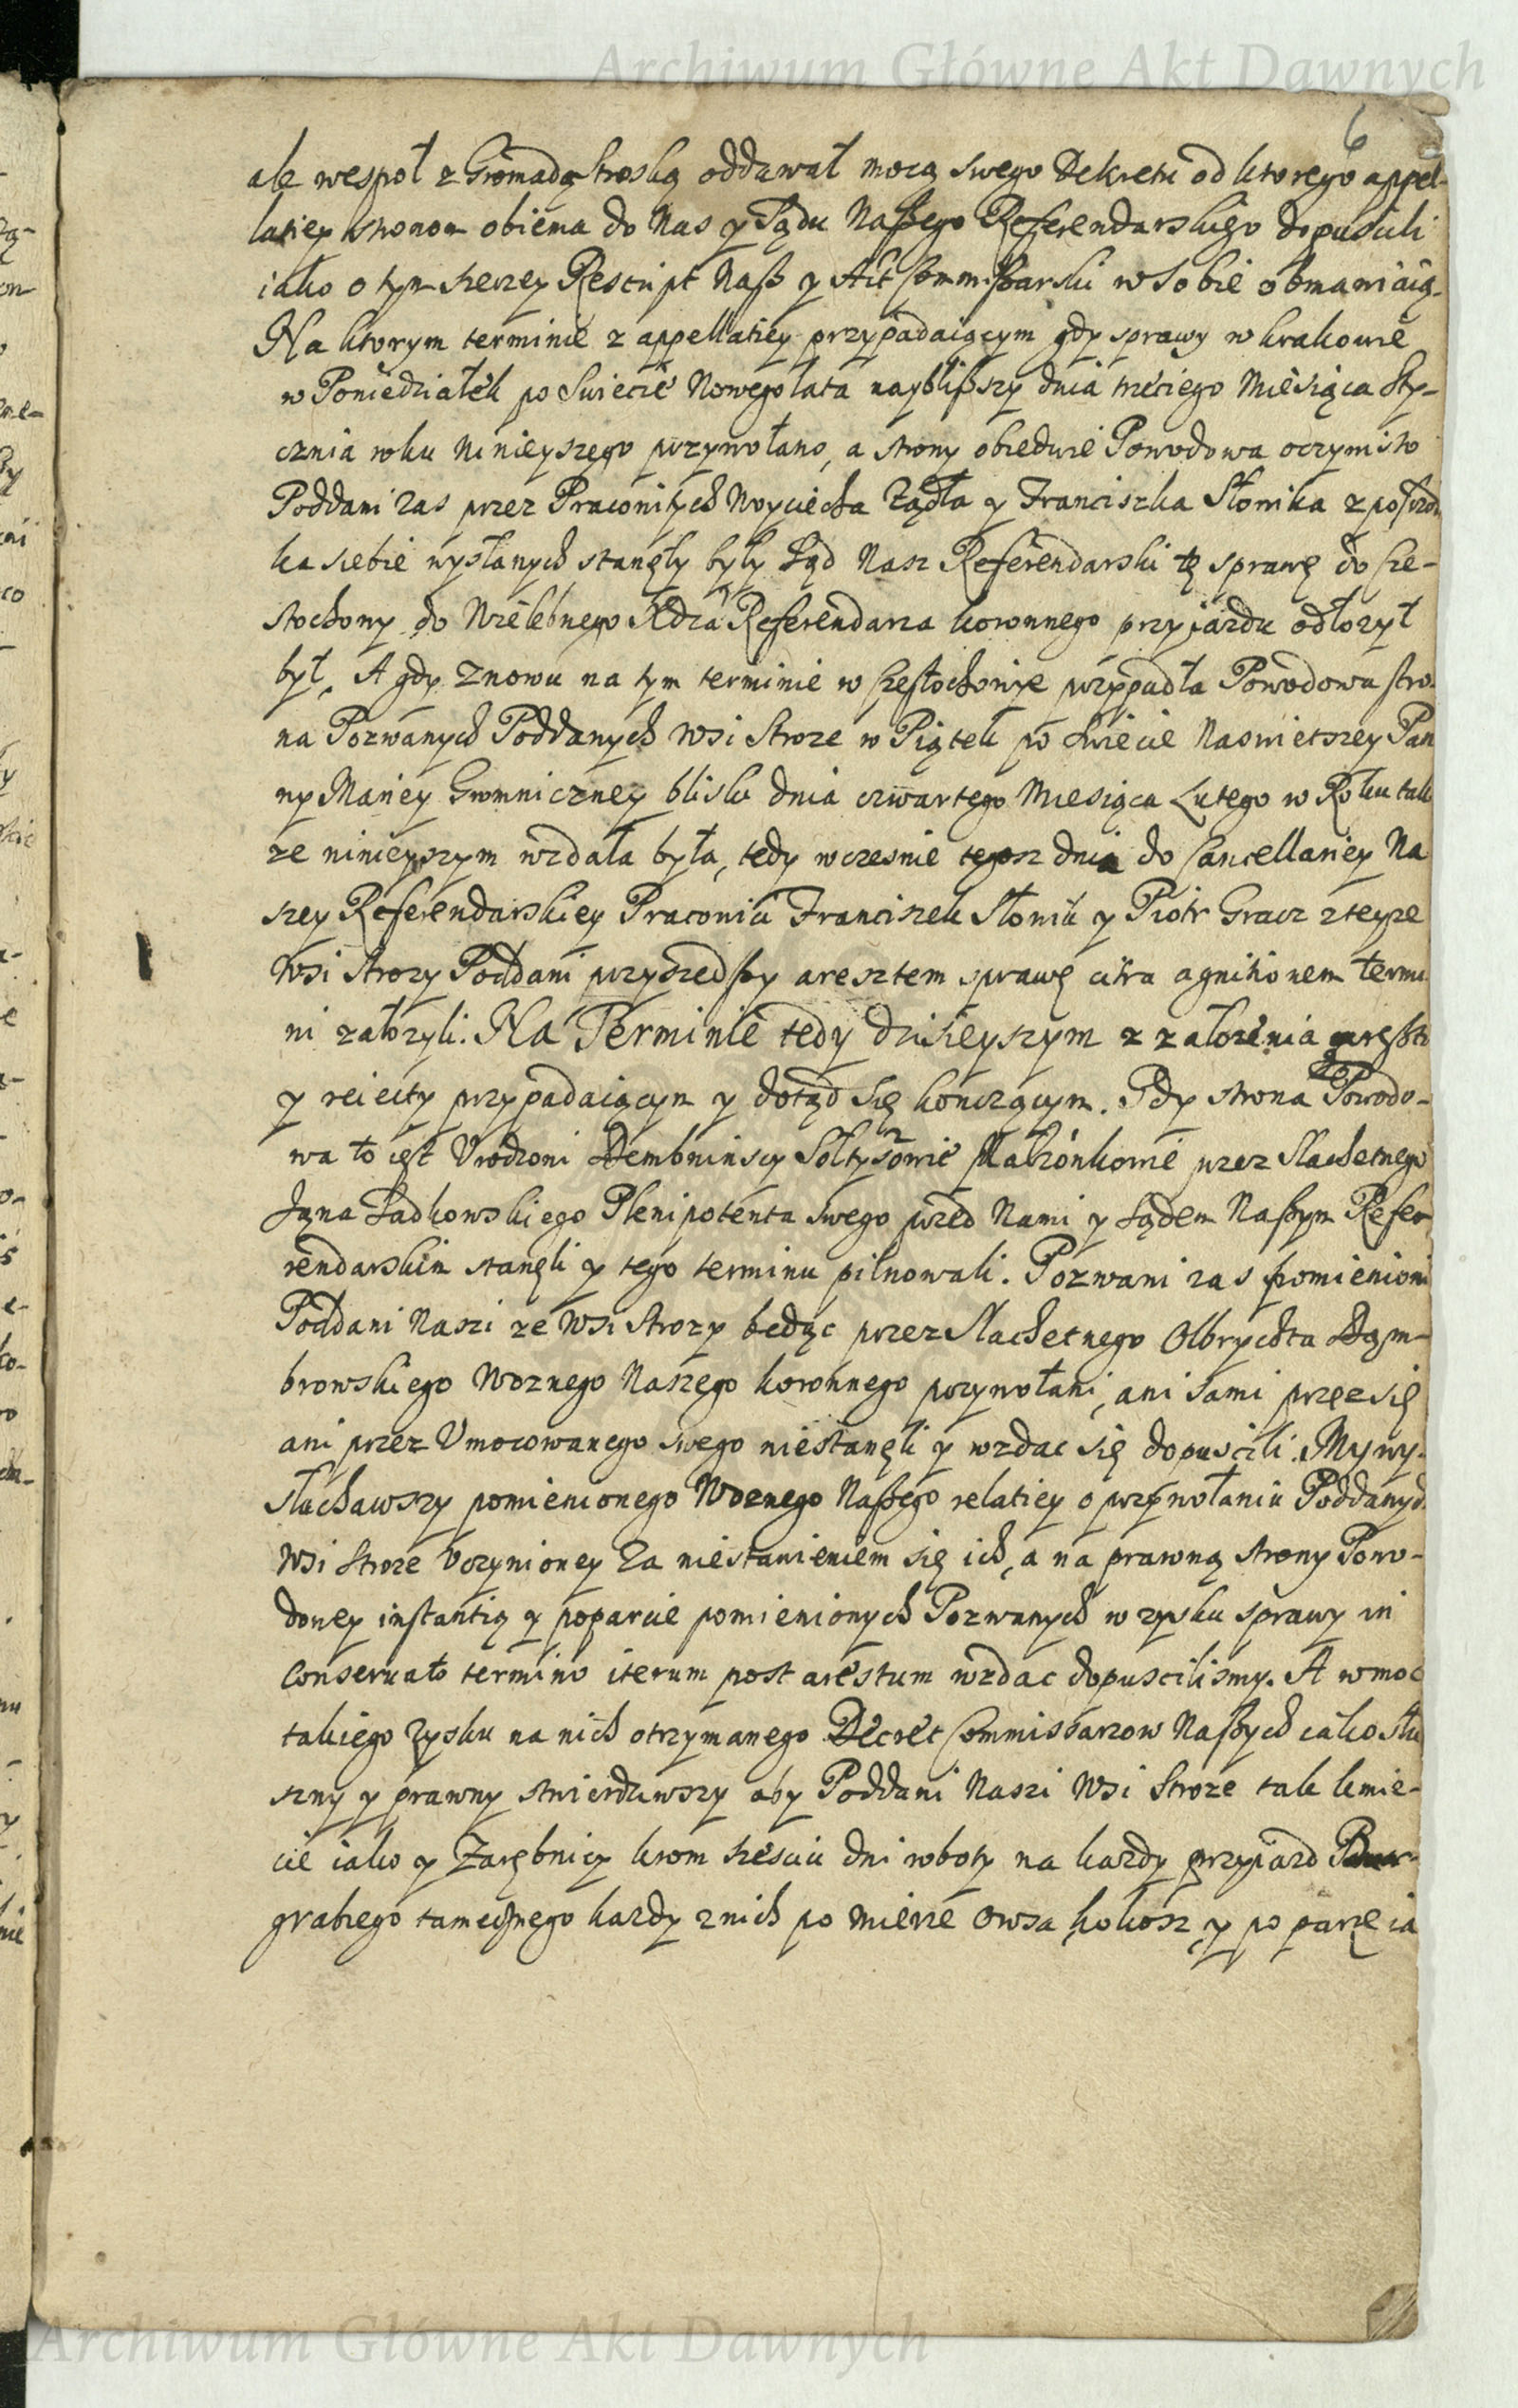 Archiwum Główne Akt Dawnych
6
ale wespoł z Gromadą stroską oddawał mocą swego Dekretu od ktorego appel-
latiey stronom obiema do Nas y Sądu Naßego Referendarskiego dopuscili
iako o tym szerzey Rescript Naß y Akt Commißarski w sobie obmawiaią.
Na ktorym terminie z appellatiey przypadaiącym gdy sprawy w krakowie
w Poniedziałek po Swiecie Nowego lata naybliszszy dnia trzeciego Miesiąca Sty-
cznia roku ninieyszego przywołano, a strony obiedwie Powodowa oczymisto
Poddani zas przez Pracowitych Woyciecha Ządła y Franciszka Słonika z posrod
ka siebie wysłanych stanęły były Sąd Nasz Referendarski tę sprawę do Cze-
stochowy do Wielebnego Xdza Referendarza koronnego przyjazdu odłozył
był. A gdy znowu na tym terminie w Częstochowie przypadła Powodowa stro-
na Pozwanych Poddanych Wsi Stroze w Piątek po Swiecie Naswietszey Pan
ny Mariey Gromniczney blisko dnia czwartego Miesiąca Lutego w Roku tak
ze ninieyszym wzdała była, tedy wczesnie tegosz dnia do Cancellariey Na
szey Referendarskiey Pracowici Franciszek Słonik y Piotr Gracz z teyze
Wsi Strozy Poddani przyszedßy aresztem sprawę citra agnitionem termi
ni załozyli. Na Terminie tedy dzisieyszym z załozenia areßtu
y reiecty przypadaiącym y dotąd się konczącym. Gdy strona Powodo-
wa to iest Vrodzoni Dembninscy Sołtysowie Małzonkowie przez Slachetnego
Jana Ładkowskiego Plenipotenta swego przed Nami y Sądem Naßym Refe-
rendarskim stanęli y tego terminu pilnowali. Pozwani zas pomienioni
Poddani Naszi ze Wsi Strozy będąc przez Slachetnego Olbrychta Dąm-
browskiego Woznego Naszego koronnego przywołani, ani sami przez się
ani przez Vmocowanego swego niestanęli y wzdac się dopuscili. My wy-
słuchawszy pomienionego Woznego Naßego relatiey o przywołaniu Poddanych
Wsi Stroze Vczynioney Za niestanieniem się ich, a na prawną strony Powo-
dowey instantią y poparcie pomienionych Pozwanych w zysku sprawy in
Conseruato termino iterum post arestum wzdac dopuscilismy. A w moc
takiego Zysku na nich otrzymanego Decret Commissarzow Naßych iako słu
szny y prawny stwierdziwszy aby Poddani Naszi Wsi Stroze tak kmie-
cie iako y Zarębnicy krom szesciu dni roboty na kazdy przyiazd Bur-
grabiego tamecznego kazdy z nich po mierze Owsa, kokosz, y po parze ia
Archiwum Główne Akt Dawnych